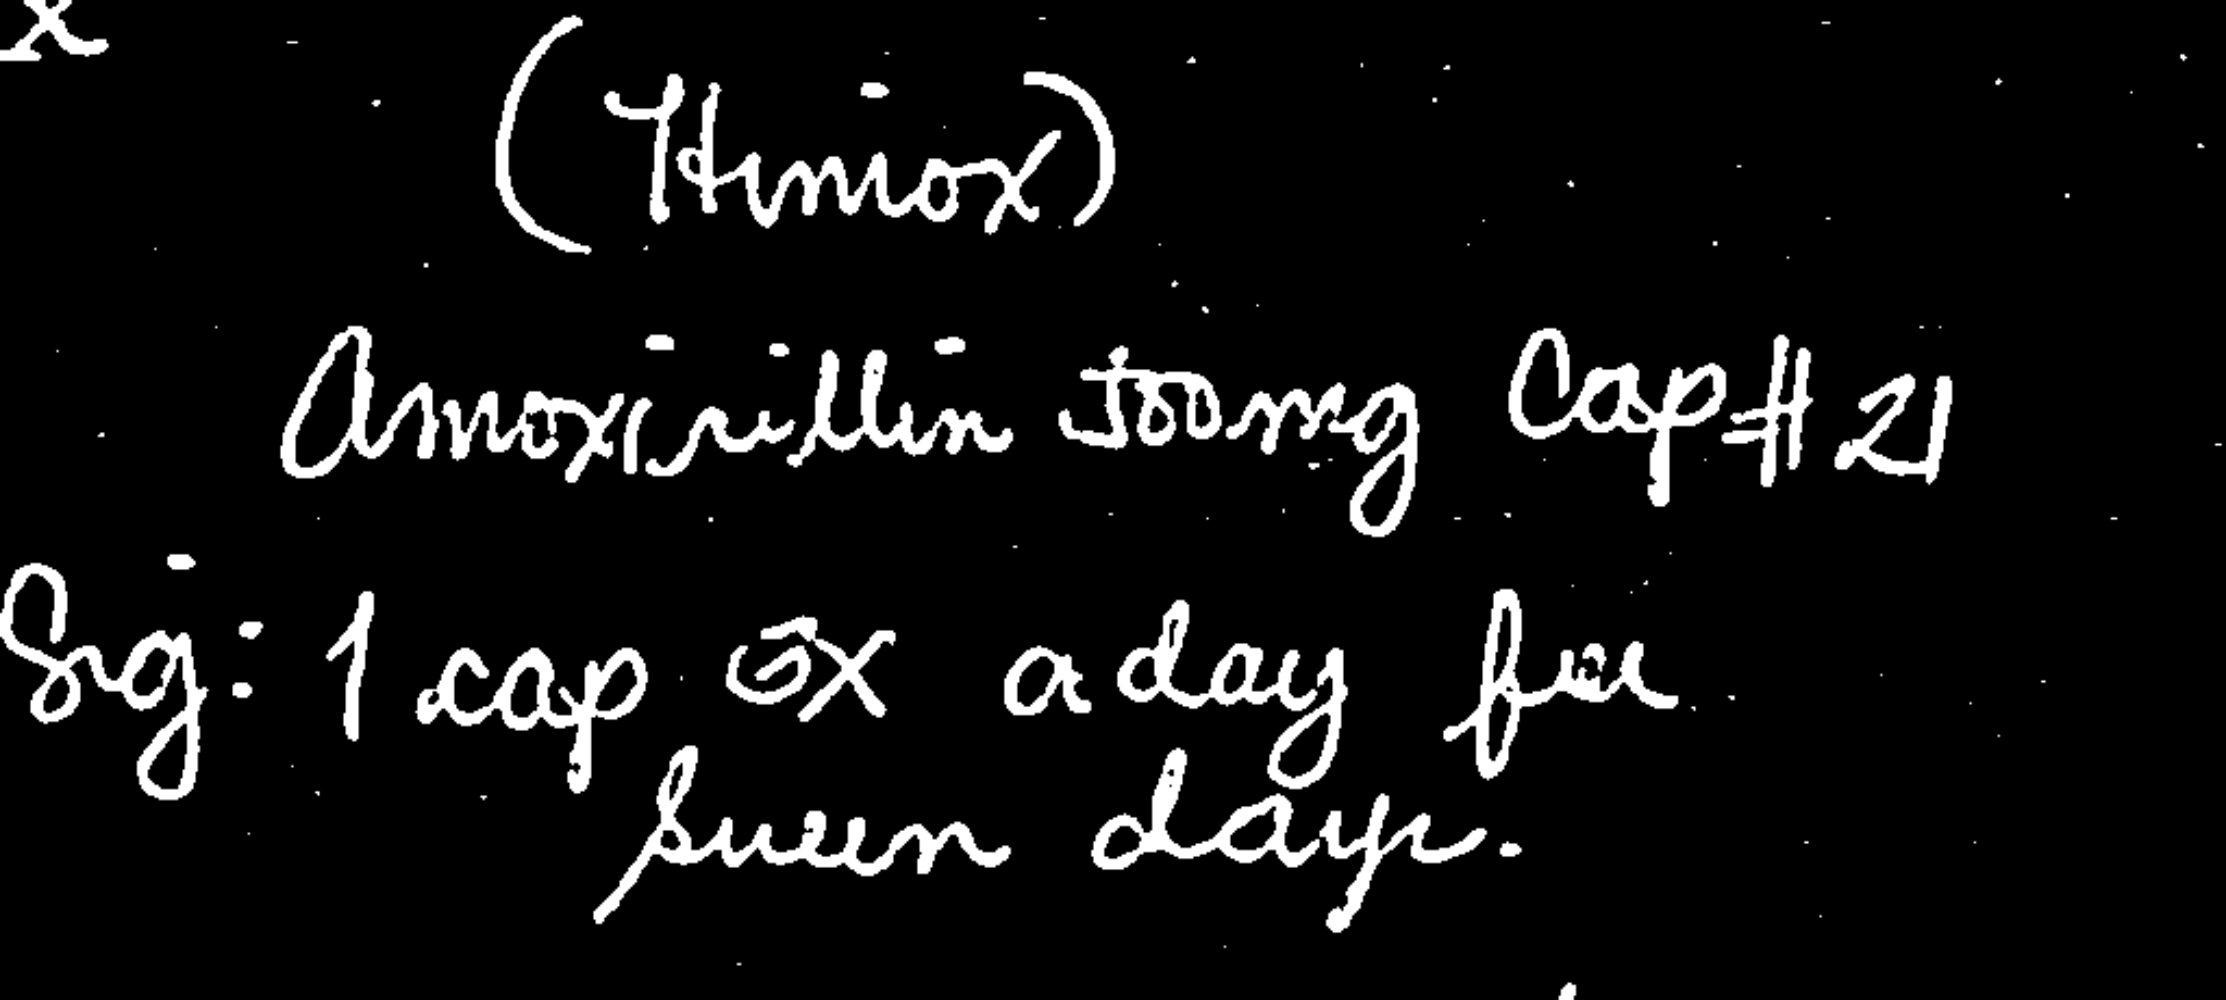 (Himox)
Amoxicillin 500mg Cap #21
Sig: 1 cap 3x a day for
seven days.